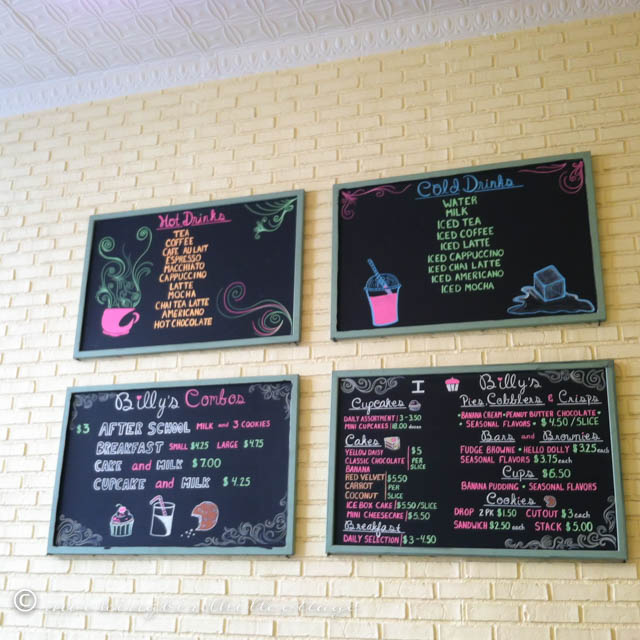 Hot Drinks
TEA
COFFEE
CAFE AU LAIT
ESPRESSO
MACCHIATO
CAPPUCCINO
LATTE
MOCHA
CHAI TEA LATTE
AMERICANO
HOT CHOCOLATE
Cold Drinks
WATER
MILK
ICED TEA
ICED COFFEE
ICED LATTE
ICED CAPPUCCINO
ICED CHAI LATTE
ICED AMERICANO
ICED MOCHA
Billy's Combos
$3 AFTER SCHOOL MILK and 3 COOKIES
BREAKFAST SMALL $4.25 LARGE $4.75
CAKE and MILK $7.00
CUPCAKE and MILK $4.25
I Billy's
Cupcakes
DAILY ASSORTMENT 3-3.50
MINI CUPCAKES 18.00 dozen
Cakes
YELLOW DAISY
CLASSIC CHOCOLATE
BANANA
$5 PER SLICE
RED VELVET
CARROT
COCONUT
$5.50 PER SLICE
ICE BOX CAKE $5.50/SLICE
MINI CHEESECAKE $5.50
Breakfast
DAILY SELECTION $3-4.50
Pies, Cobblers & Crisps
•BANANA CREAM•PEANUT BUTTER CHOCOLATE•
• SEASONAL FLAVORS • $4.50/SLICE
Bars and Brownies
FUDGE BROWNIE • HELLO DOLLY $3.25 each
SEASONAL FLAVORS $3.75 each
Cups $6.50
BANANA PUDDING • SEASONAL FLAVORS
Cookies
DROP 2PK $1.50 CUTOUT $3 each
SANDWICH $2.50 each STACK $5.00
©